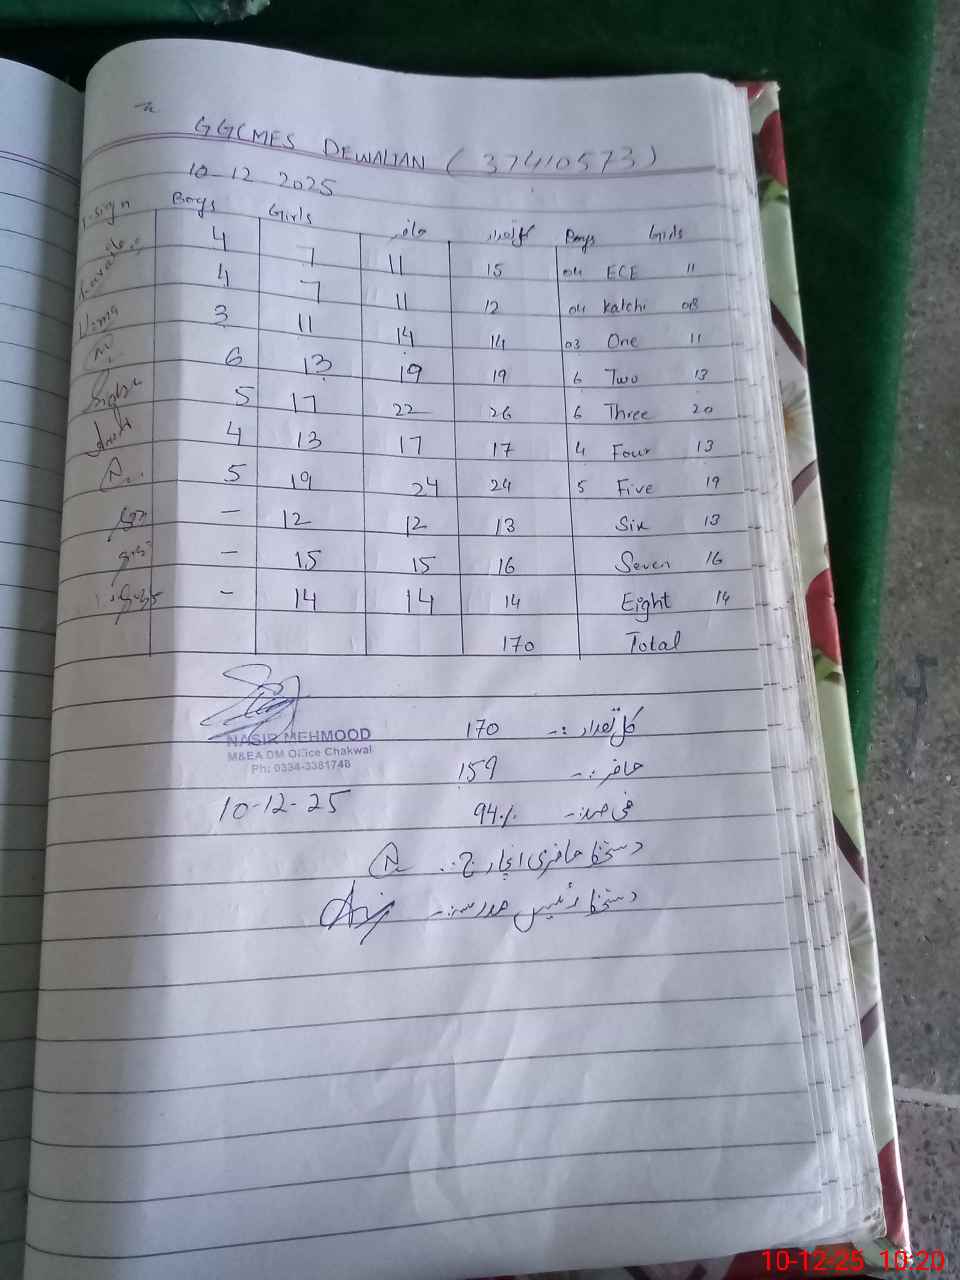 GGCMES DEWALIAN (37410573)
10-12-2025
Boys Girls حاضر کل تعداد Boys Girls
4 7 11 15 04 ECE 11
4 7 11 12 04 Katchi 08
3 11 14 14 03 One 11
6 13 19 19 6 Two 13
5 17 22 26 6 Three 20
4 13 17 17 4 Four 13
5 19 24 24 5 Five 19
- 12 12 13 Six 13
- 15 15 16 Seven 16
- 14 14 14 Eight 14
170 Total
کل تعداد :- 170
NASIR MEHMOOD
M&EA DM Office Chakwal
Ph: 0334-3381748
حاضر :- 159
فی صد :- 94%
10-12-25
دستخط حاضری انچارج :-
دستخط رئیس مدرسہ :-
10-12-25 10:20